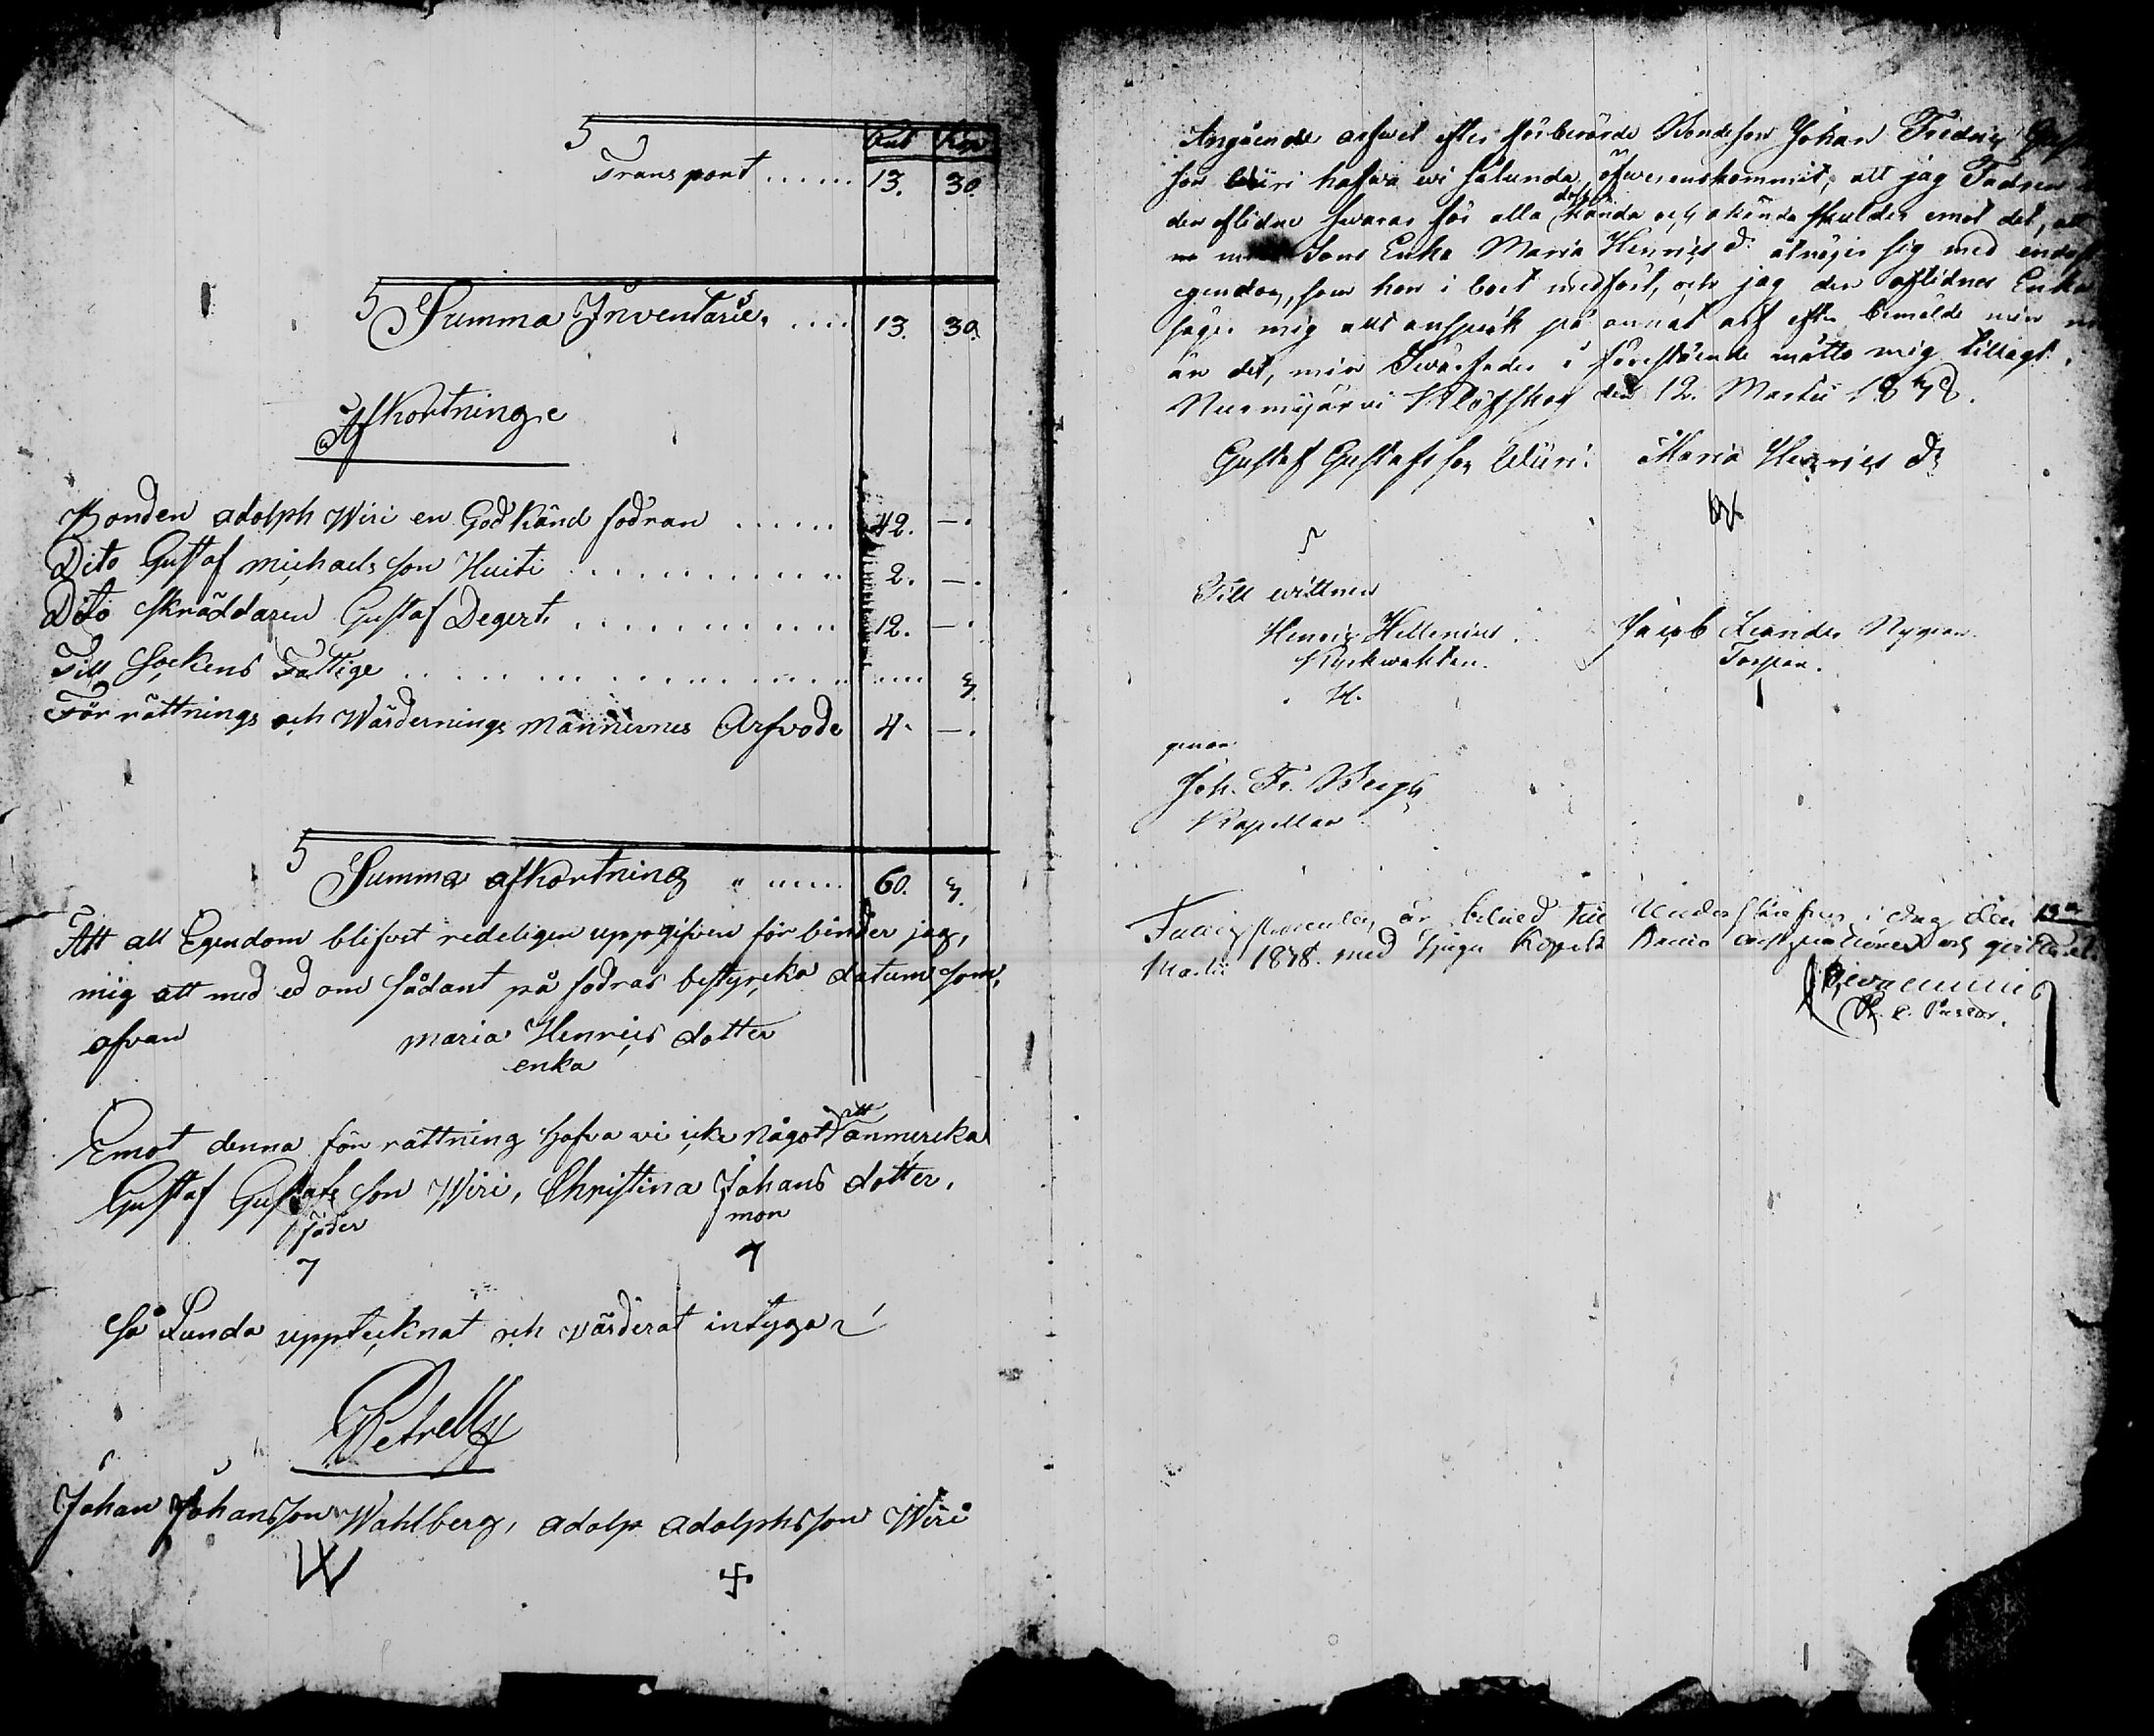 Rub Kop
Transport ...... 13. 30.
Summa Inventarie. .... 13. 30.
Afkortning
Bonden adolph Wiri en God känd fodran ...... 42. —.
Dito Gustaf michaels son Huiti ........... 2. —.
Dito skräddaren Gustaf Degert. ........... 12. —.
Till Sockens Fattige ........... 3.
För rättnings och Wärdernings Männernes Arfvode 4. —.
Summa afkortning " ..... 60. 3.
Att all Egendom blifvet redeligen uppgifven för binder jag,
mig att med ed om sådant på fodras bestyrcka datum som,
ofvan maria Henrics dotter
enka
Emot denna för rättning hafva vi icke något att anmercka
Gustaf Gustafs son Wiri, Christina Johans dotter.
fader mor
Så Lunda upptecknat och värderat intygar
Petrell
Johan Johansson Wahlberg, adolp adolphsson Wiri
Angående arfvet efter förberörde Bondeson Johan Fredric
son Wiiri hafva wi sålunda öfwerenskommit, att jag Fadren
den aflidne swarar för alla dess kända och okända skulder emot det, att
min Sons Enka Maria Henrics d: åtnöjer sig med endast
egendom, som hon i boet medfört, och jag den aflidnes Enka
säger mig allt anspråk på annat arf efter bemälde min
än det, min Swärfader i förestående måtto mig tillagt.
Nurmijärvi Klöfskog den 12. Martii 1848.
Gustaf Gustafs son Wiiri. Maria Henrics dr
Till wittnen
Henric Hellenius. Jacob Leander Nygren
Kyrkwäktaren. Torpare.
H.
genom
Joh. Fr. Bergh
Kapellan
är till Underskrifven i dag den 13de
Martii 1848. med tjugu Kopek och
Pastor.